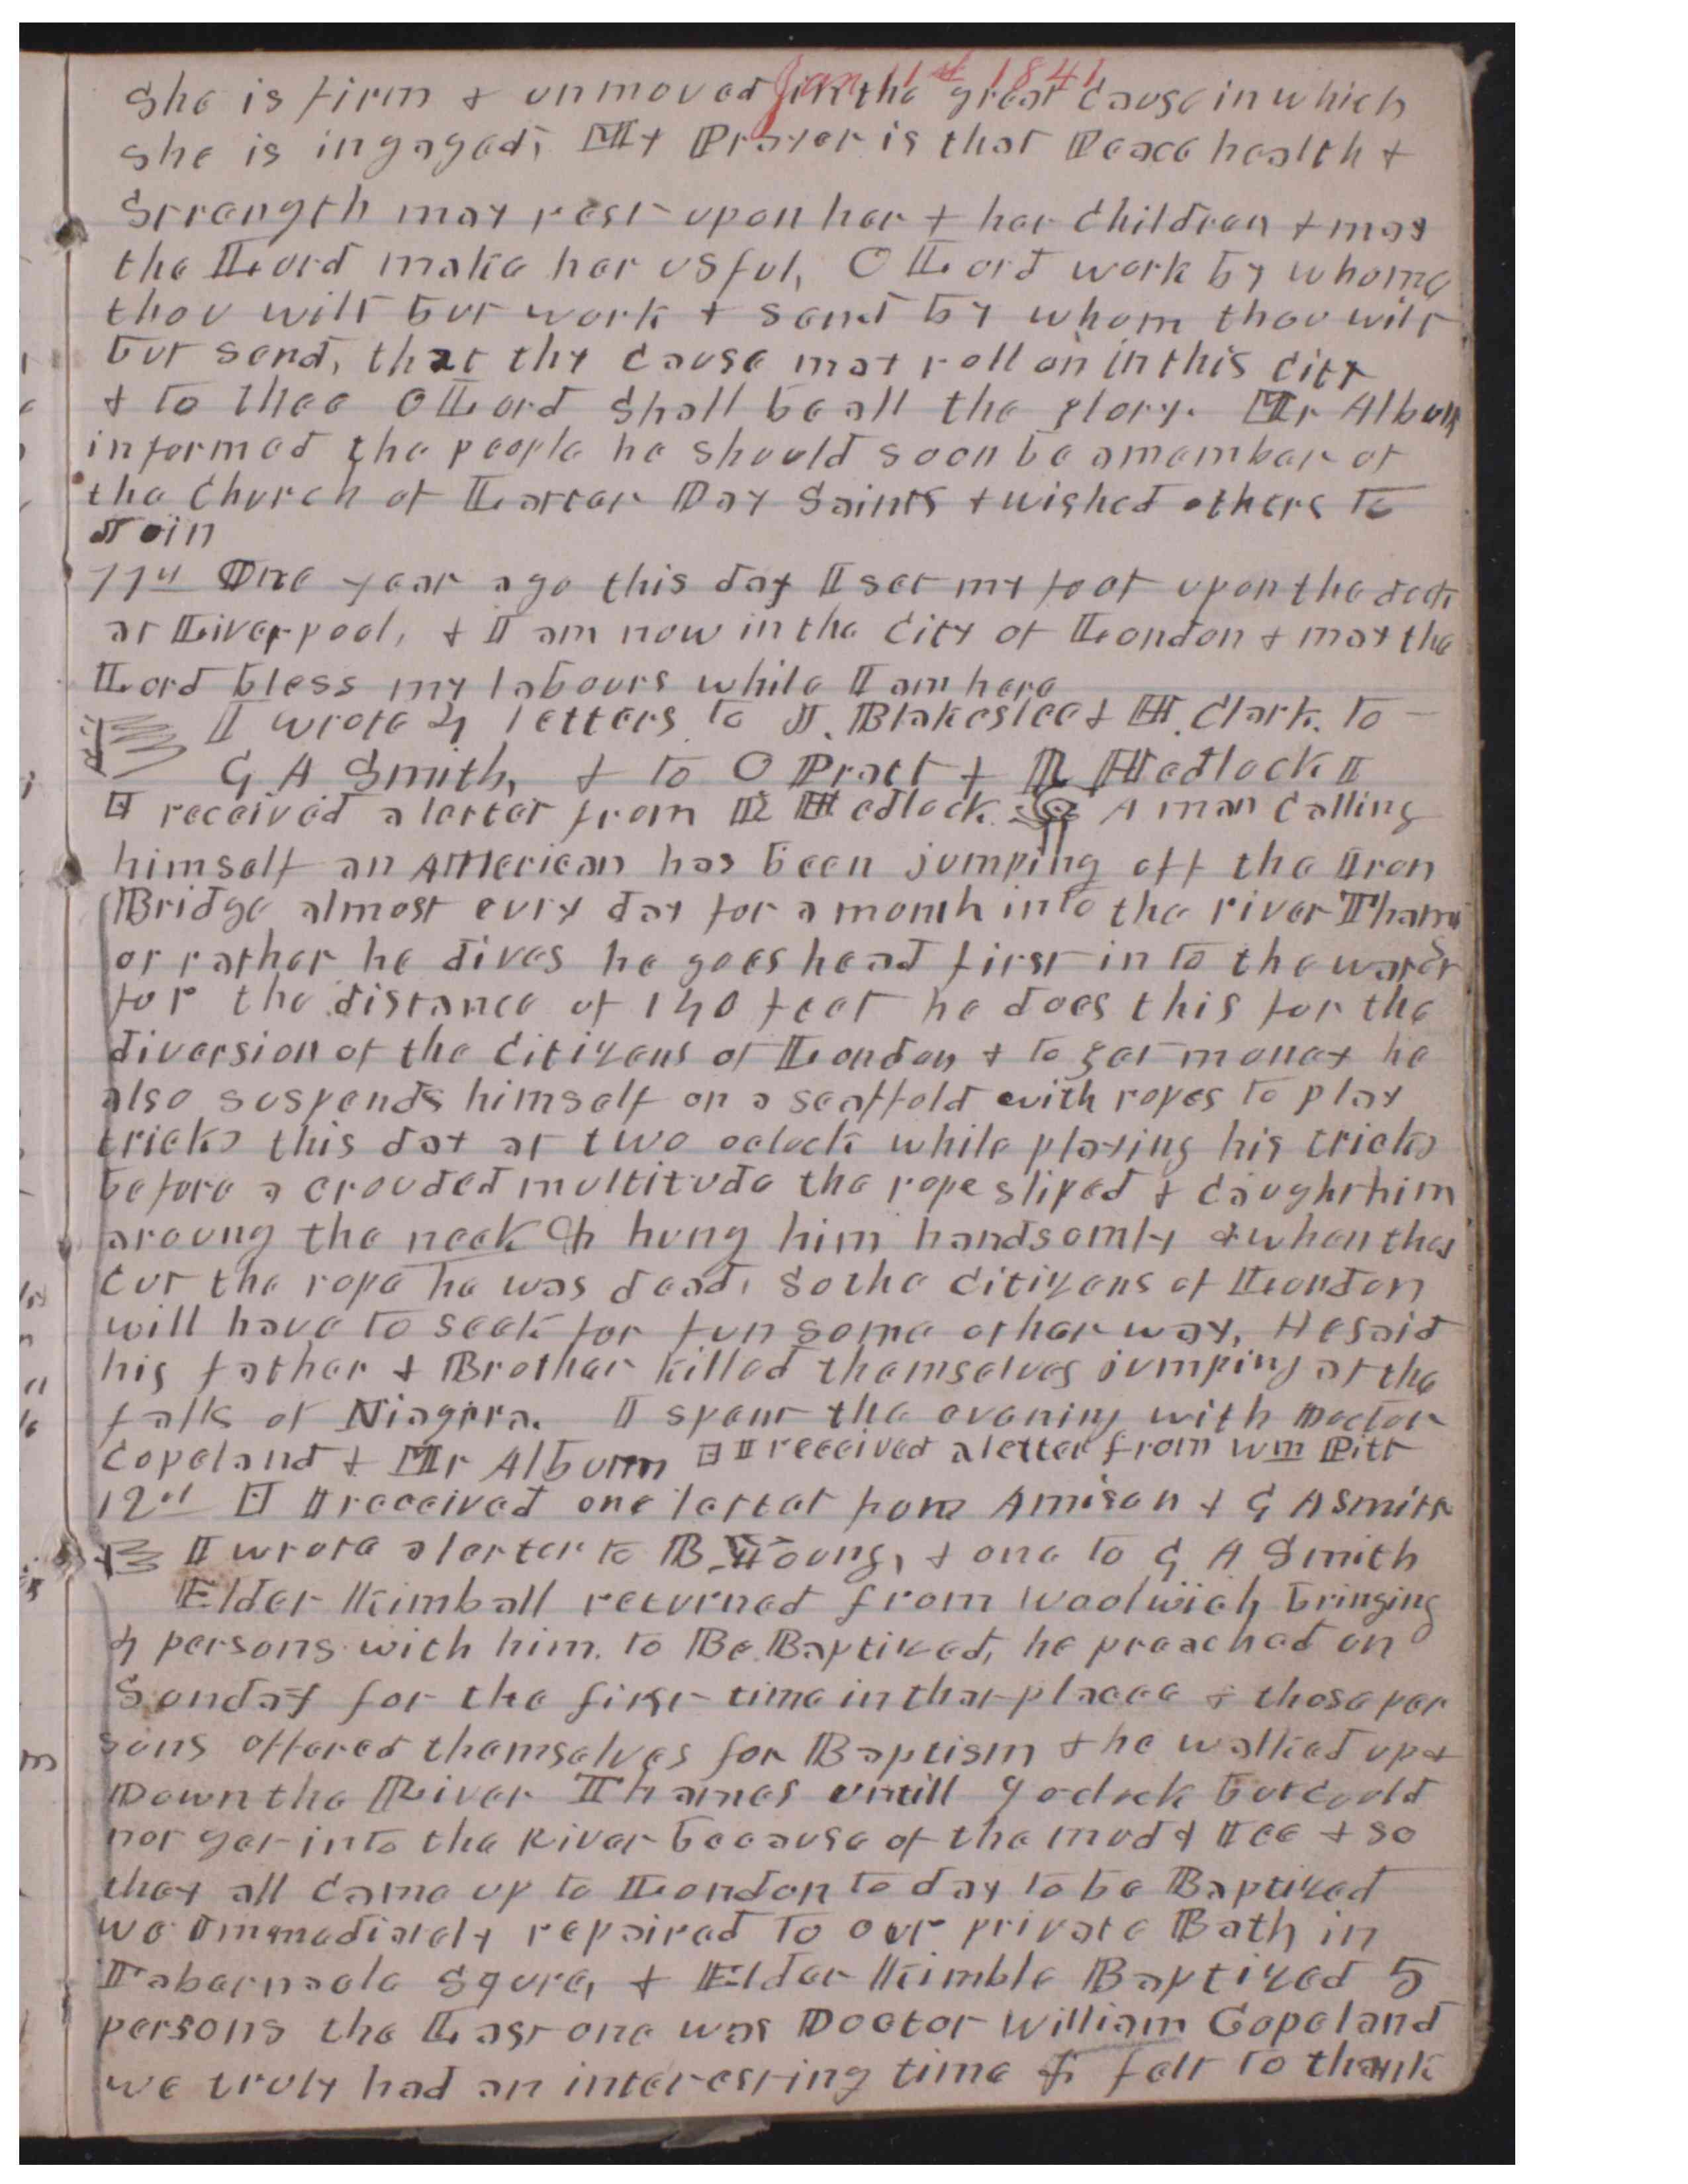 Jan 11st 1841
She is firm & unmoved in the great cause in which
she is ingaged, My Prayer is that Peace health &
Strength may rest upon her & her children & may
the Lord make her usful, O Lord work by whome
thou wilt but work & send by whom thou wilt
but send, that thy cause may roll on in this city
& to thee O Lord Shall be all the glory. Mr Album
informed the people he should soon be a member of
the Church of Latter Day Saints & wished others to
Join
11th One year ago this day I set my foot upon the dock
at Liverpool, & I am now in the City of London & may the
Lord bless my labours while I am here
I wrote 4 letters to J. Blakeslee & H. Clark. to
G A Smith, & to O Pratt & R Hedlock
I received a letter from R Hedlock. A man calling
himself an American has been jumping off the Iron
Bridge almost evry day for a month into the river Thams
or rather he dives he goes head first in to the water
for the distance of 140 feet he does this for the
diversion of the Citizens of London & to get money he
also suspends himself on a scaffold with ropes to play
tricks this day at two oclock while playing his tricks
before a crouded multitude the rope sliped & caught him
aroung the neck & hung him handsomly & when they
cut the rope he was dead, So the citizens of London
will have to seek for fun some other way, He said
his father & Brother killed themselves jumping at the
falls of Niagara. I spent the evening with Doctor
Copeland & Mr Album I received a letter from Wm Pitt
12th I received one letter from Amison & G A Smith
I wrote a letter to B. Young, & one to G A Smith
Elder Kimball returned from Woolwich bringing
4 persons with him. to Be Baptized, he preached on
Sunday for the first time in that place & those per
sons offered themselves for Baptism & he walked up &
Down the River Thames untill 9 oclock but could
not get into the River because of the mud & Ice & so
they all came up to London to day to be Baptized
we immediately repaired to our private Bath in
Tabernacle Squre, & Elder Kimble Baptized 5
persons the Last one was Doctor William Copeland
we truly had an interesting time & felt to thank